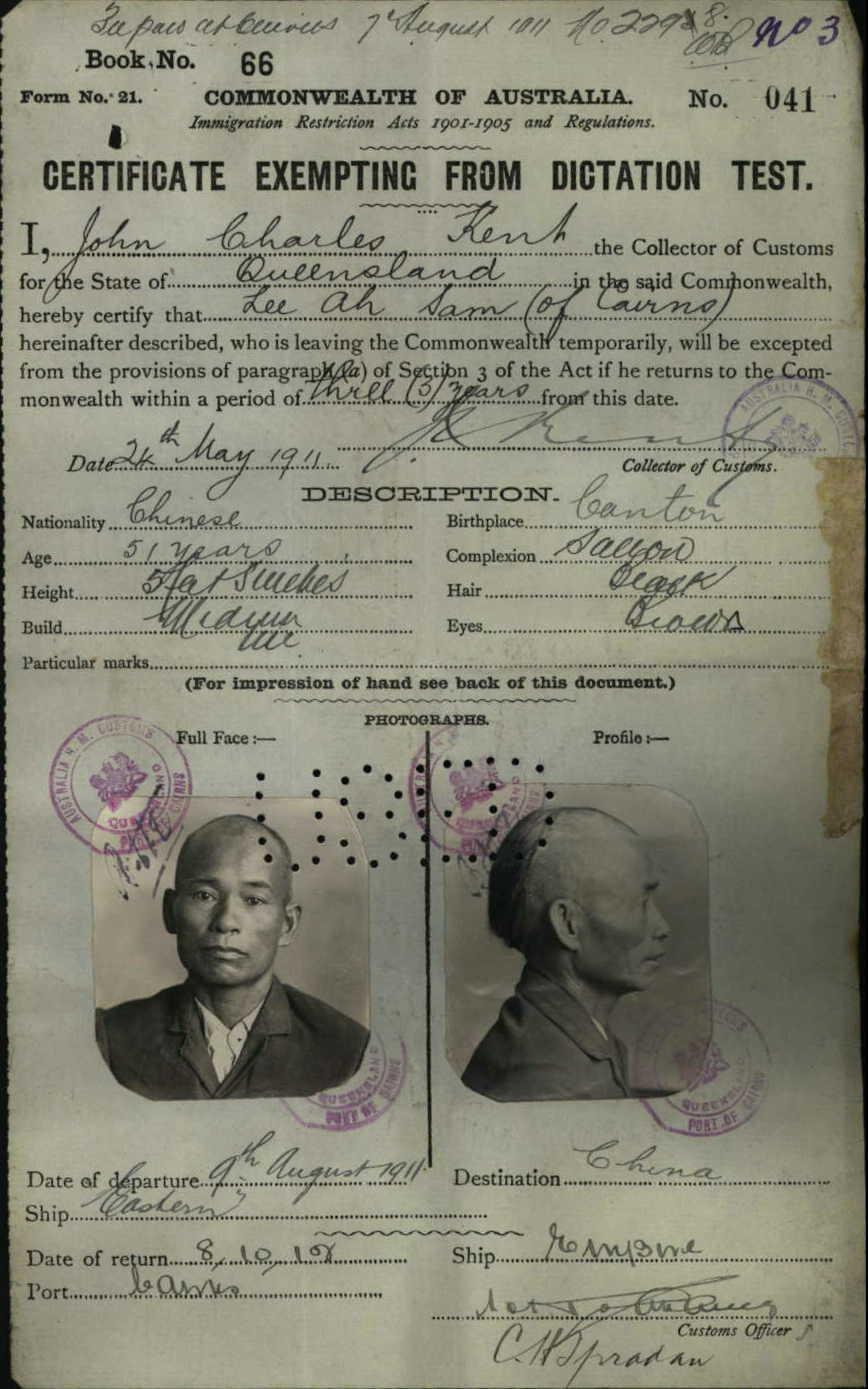 7th August 1911 No 3
Book No. 66
Form No. 21. COMMONWEALTH OF AUSTRALIA. No. 041
Immigration Restriction Acts 1901-1905 and Regulations.
CERTIFICATE EXEMPTING FROM DICTATION TEST.
I, John Charles Kent the Collector of Customs
for the State of Queensland in the said Commonwealth,
hereby certify that Lee Ah Sam (of Cairns)
hereinafter described, who is leaving the Commonwealth temporarily, will be excepted
from the provisions of paragraph (a) of Section 3 of the Act if he returns to the Com-
monwealth within a period of three (3) years from this date.
Date 24th May 1911.
Collector of Customs.
DESCRIPTION.
Nationality Chinese Birthplace Canton
Age 51 years Complexion Sallow
Height 5 feet 5 inches Hair Black
Build Medium Eyes Brown
Particular marks Nil
(For impression of hand see back of this document.)
PHOTOGRAPHS.
Full Face :— Profile :—
QUEENSLAND
PORT OF CAIRNS
QUEENSLAND
PORT OF CAIRNS
Date of departure 9th August 1911 Destination China
Ship Eastern
Date of return 8/10/12 Ship Empire
Port Cairns
Customs Officer